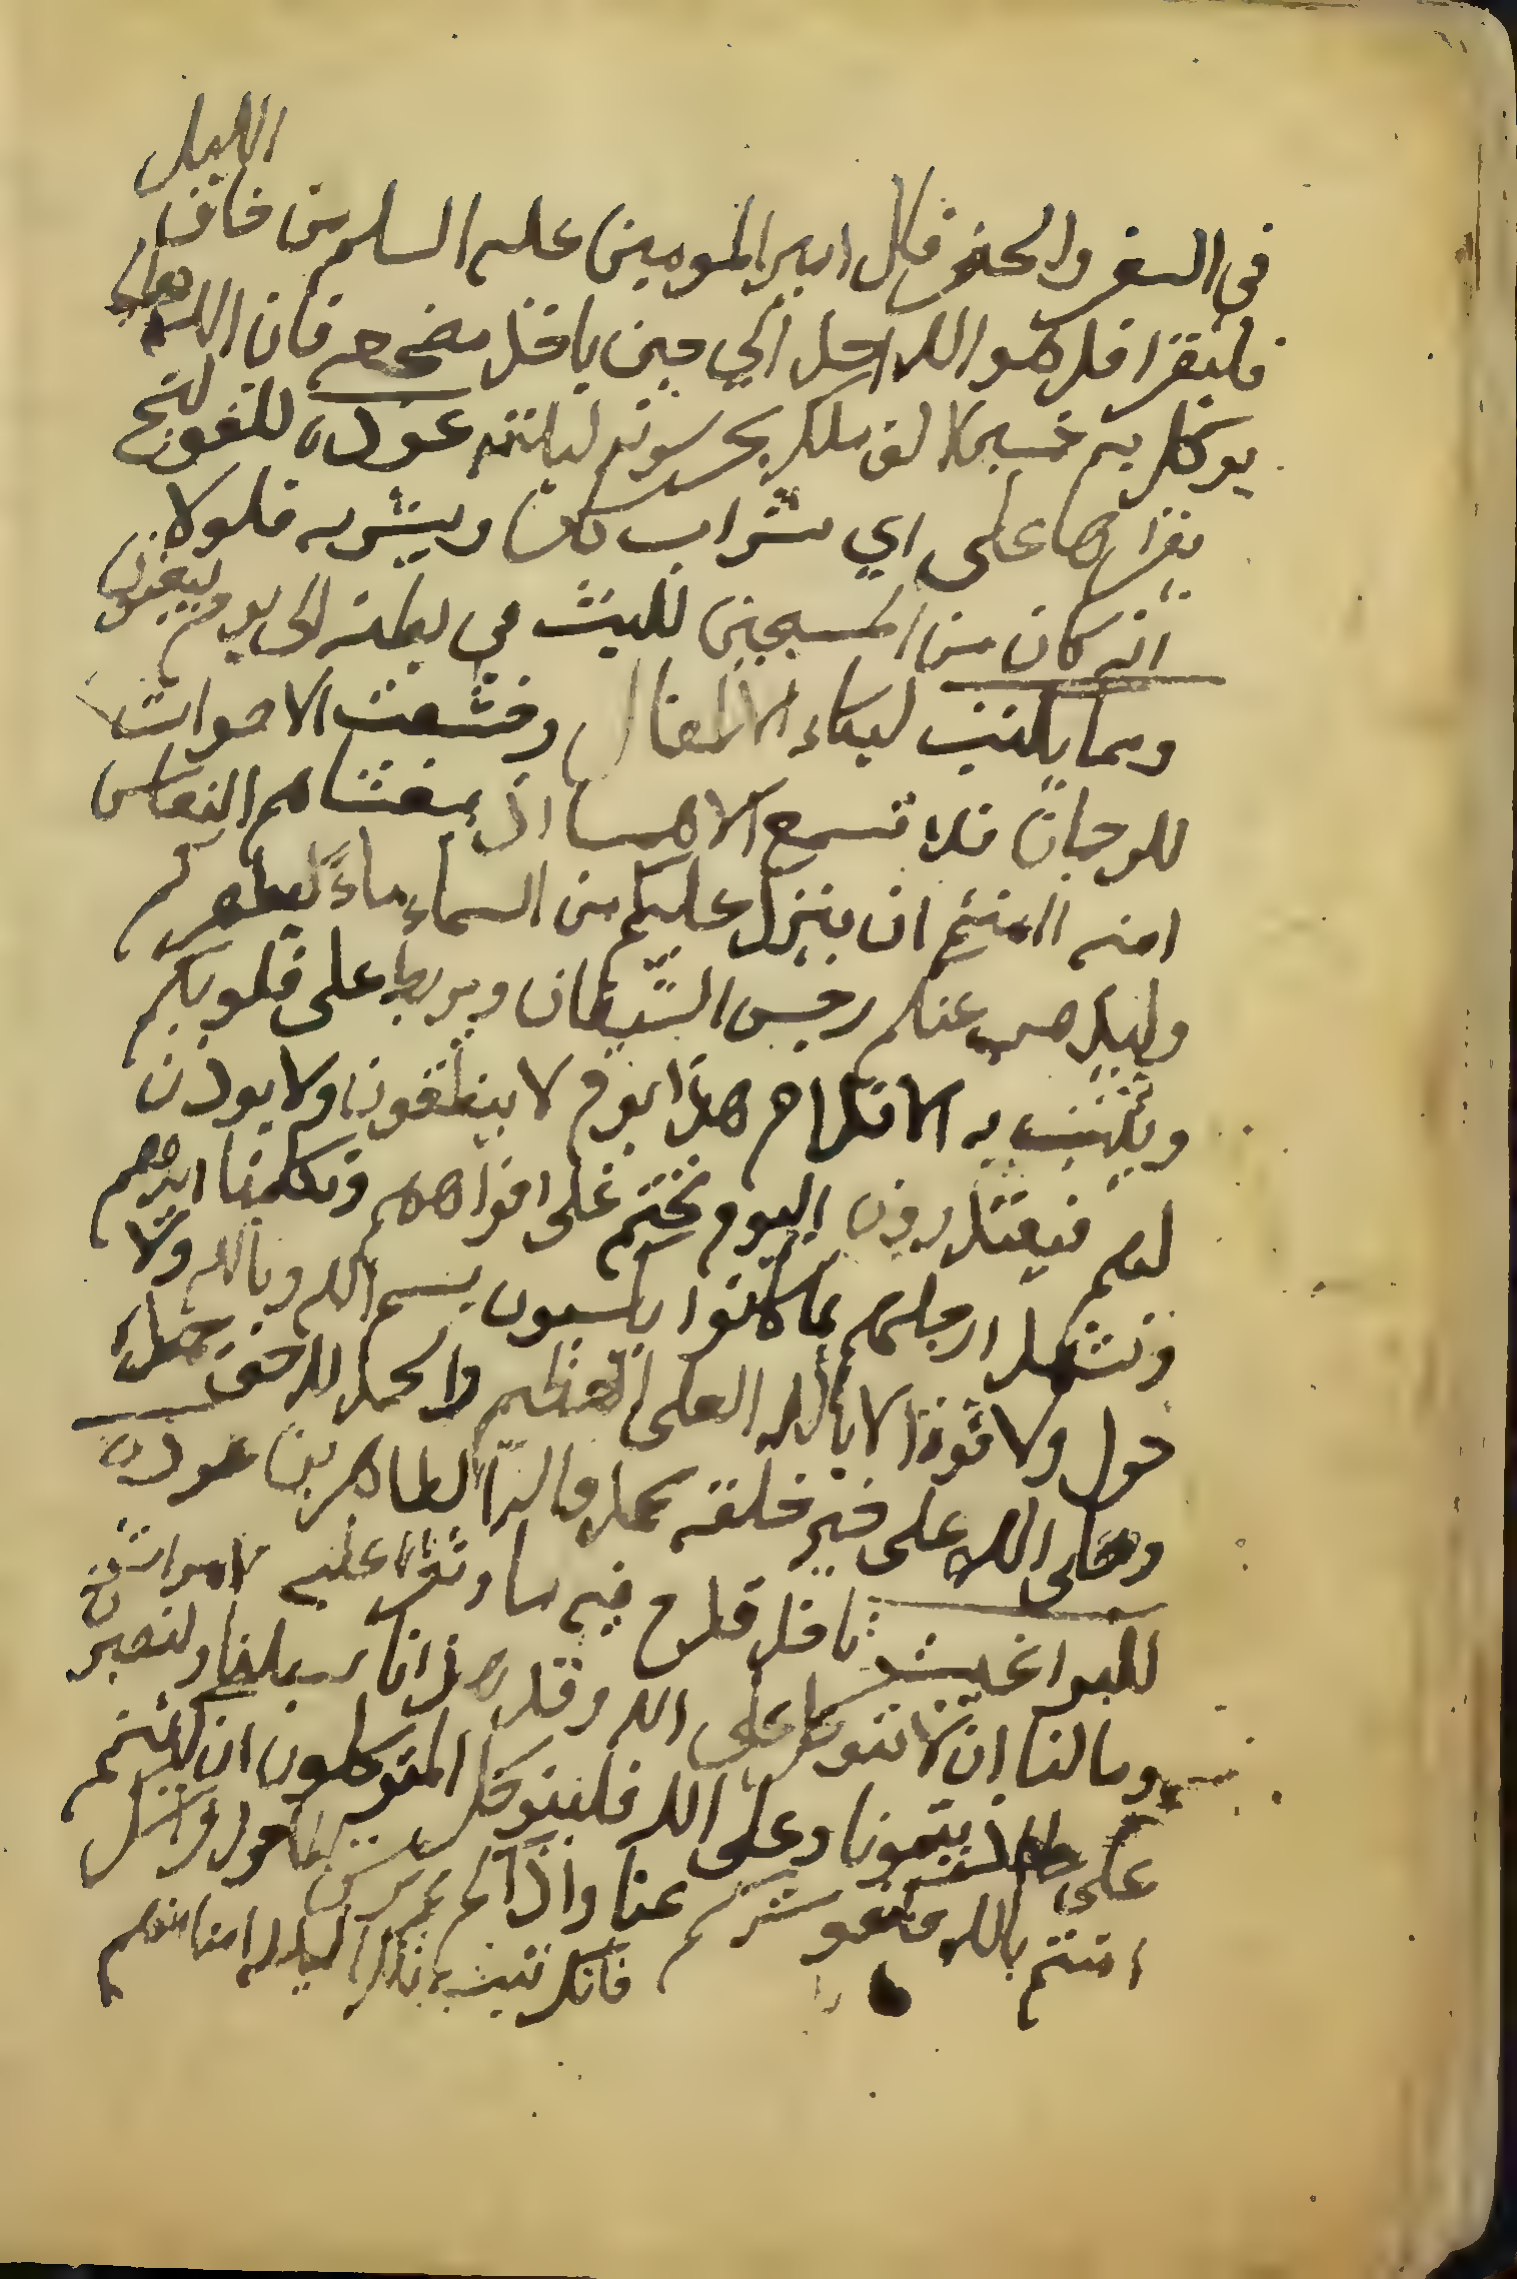 الليل
في السفر والحضر قال امير المومنين عليه السلم من خاف
فليقرا قل هو الله احد الي حين ياخذ مضجعه فان الله تعالى
يوكل به خمسين الف ملك يحرسونه ليلته عوذه للقولنج
يقراها على اي شراب كان ويشربه فلولا
انه كان من المسبحين للبث في بطنه الى يوم يبعثون
ومما يكتب لبكاء الاطفال وخشعت الاصوات
للرحمان فلا تسمع الا همسا اذ يغشاهم النعاس
امنه اامنتم ان ينزل عليكم من السماء ماءً ليطهركم
وليذهب عنكم رجس الشّيطان ويربط على قلوبكم
ويثبت به الاقدام هذا يوم لا ينطقون ولا يوذن
لهم فيعتذرون اليوم نختم على افواههم وتكلمنا ايديهم
وتشهد ارجلهم بما كانوا يكسبون بسم الله وبالله ولا
حول ولا قوة الا بالله العلي العظيم والحمد لله حق حمده
وصلى الله على خير خلقه محمد واله الطاهرين عوذه
للبراغيث تاخذ قدح فيه ما وتقرا عليه
وما لنا ان لا نتوكل على الله وقد هدانا سبلنا ولنصبرن
على ما اذيتمونا وعلى الله فليتوكل المتوكلون ان كنتم
امنتم بالله شركم عنا واذا لم